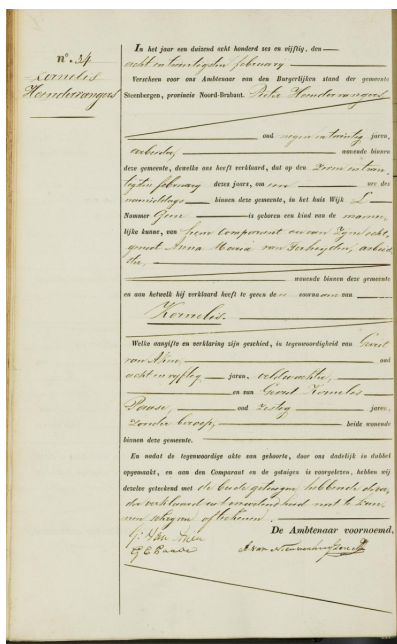 n°. 34
Kornelis
Hoendervangers
In het jaar een duizend acht honderd zes en vijftig, den
acht en twintigsten february
Verscheen voor ons Ambtenaar van den Burgerlijken stand der gemeente
Steenbergen, provincie Noord-Brabant. Pieter Hoendervangers
oud negen en twintig jaren,
arbeider, wonende binnen
deze gemeente, dewelke ons heeft verklaard, dat op den zeven en twin-
tigsten february dezes jaars, om een ure des
namiddags binnen deze gemeente, in het huis Wijk L
Nummer Geen is geboren een kind van de manne-
lijke kunne, van hem Comparant en van zijne echt-
genoot Anna Maria van Terheyden, arbeid-
ster,
wonende binnen deze gemeente
en aan hetwelk hij verklaard heeft te geven den voornaam van
Kornelis.
Welke aangifte en verklaring zijn geschied, in tegenwoordigheid van Gerrit
van Aken, oud
acht en vyftig, jaren, veldwachter,
en van Gerrit Kornelis
Paase, oud zestig jaren,
zonder beroep, beide wonende
binnen deze gemeente.
En nadat de tegenwoordige akte van geboorte, door ons dadelijk in dubbel
opgemaakt, en aan den Comparant en de getuigen is voorgelezen, hebben wij
dezelve geteekend met de beide getuigen hebbende de va-
der verklaard uit onwetendheid niet te kun-
nen schryven of teekenen.
De Ambtenaar voornoemd,
G: Van Aken
G C Paase